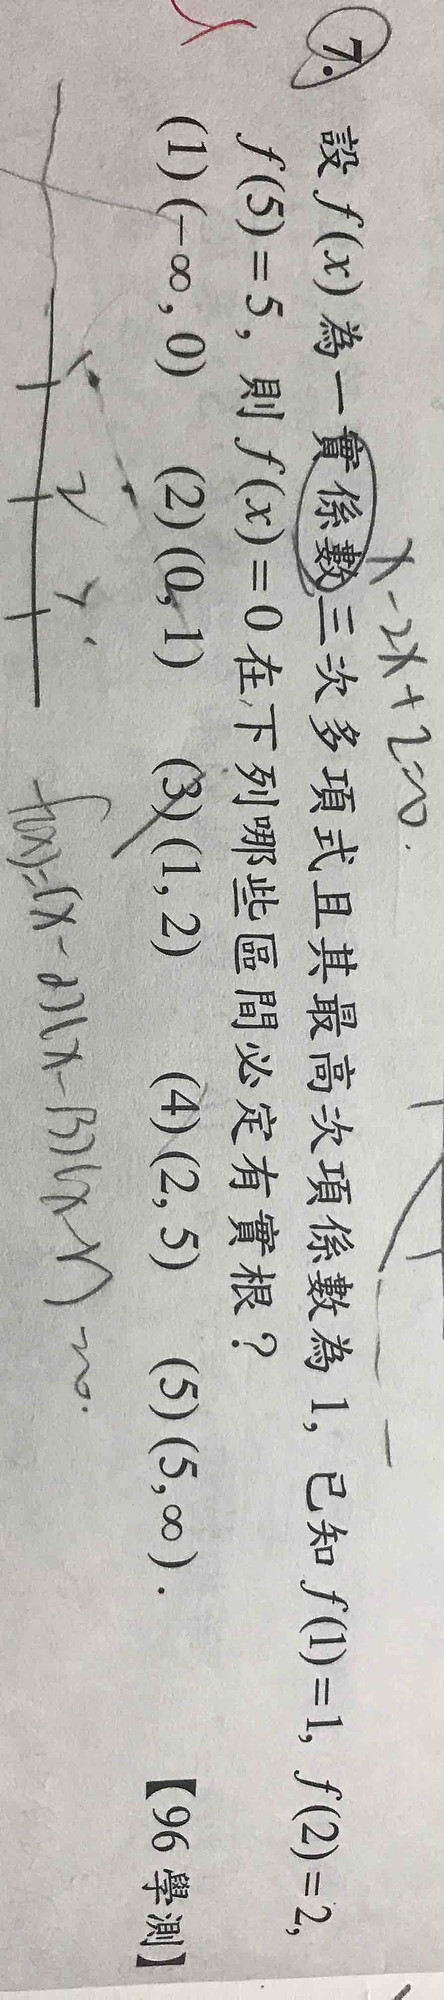 7. 設 f(x) 為一實係數三次多項式且其最高次項係數為 1, 已知 f(1)=1, f(2)=2,
f(5)=5, 則 f(x)=0 在下列哪些區間必定有實根?
(1) (-∞, 0) (2) (0, 1) (3) (1, 2) (4) (2, 5) (5) (5, ∞).
【96 學測】
x-2x+2=0.